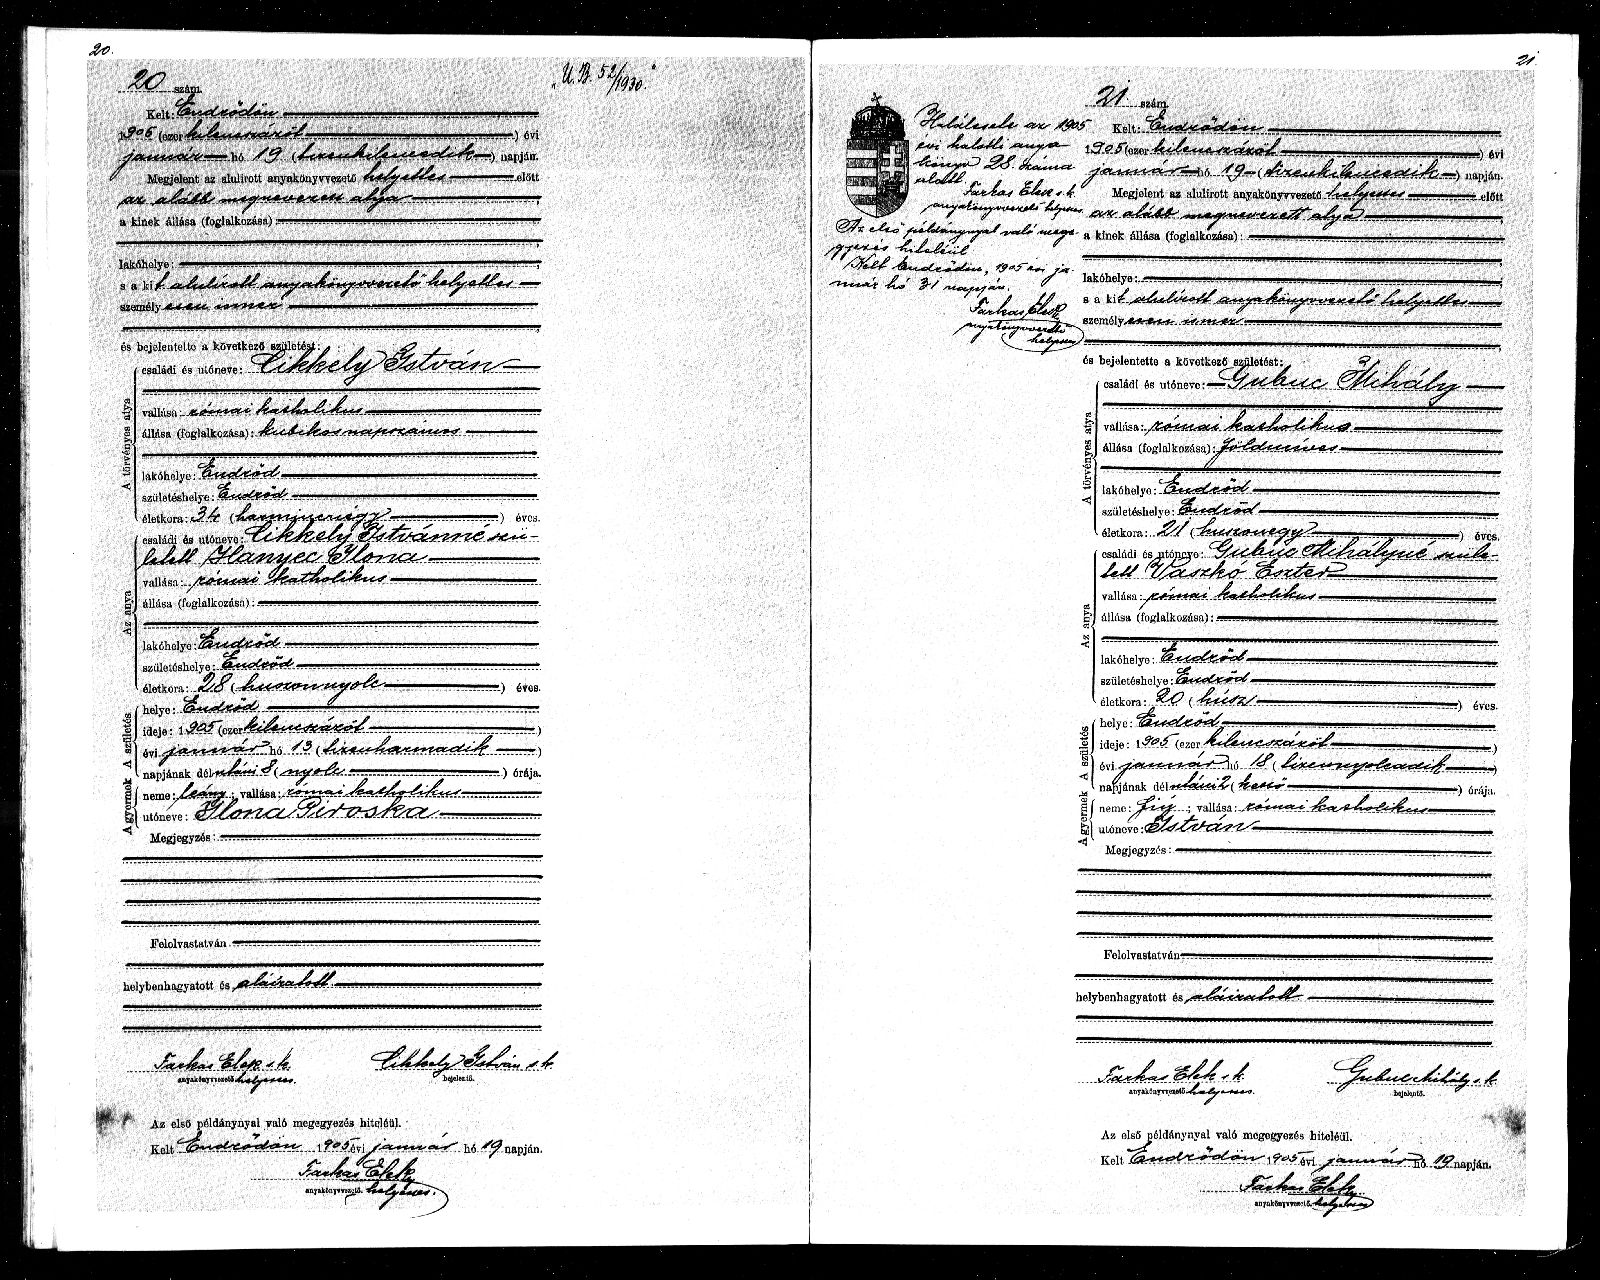 20.
20 szám.
„U. B. 52/1930.”
Kelt: Endrődön
1905 (ezer kilencszázöt) évi
január hó 19 (tizenkilencedik) napján.
Megjelent az alulirott anyakönyvvezető helyettes előtt
az alább megnevezett atya
a kinek állása (foglalkozása):
lakóhelye:
s a kit alulírott anyakönyvvezető helyettes
személyesen ismer
és bejelentette a következő születést:
A törvényes atya
családi és utóneve: Cikkely István
vallása: római katholikus
állása (foglalkozása): kubikos napszámos
lakóhelye: Endrőd
születéshelye: Endrőd
életkora: 34 (harmincnégy) éves.
Az anya
családi és utóneve: Cikkely Istvánné szü-
letett Hanyec Ilona
vallása: római katholikus
állása (foglalkozása):
lakóhelye: Endrőd
születéshelye: Endrőd
életkora: 28 (huszonnyolc) éves.
A gyermek A születés
helye: Endrőd
ideje: 1905 (ezer kilencszázöt)
évi január hó 13 (tizenharmadik)
napjának délutáni 8 (nyolc) órája.
neme: leány; vallása: római katholikus
utóneve: Ilona Piroska
Megjegyzés:
Felolvastatván
helybenhagyatott és aláiratott
Farkas Elek s.k. Cikkely István s k
anyakönyvvezető helyettes. bejelentő.
Az első példánynyal való megegyezés hiteléül.
Kelt Endrődön 1905 évi január hó 19 napján.
Farkas Elek
anyakönyvvezető. helyettes.
21
21 szám.
Halálesete az 1905
évi halotti anya
könyv 28 száma
alatt
Farkas Elek s.k.
anyakönyvvezető helyettes
Az első példánynyal való mege-
gyezés hiteléül
Kelt Endrődön, 1905 évi ja-
nuár hó 31 napján.
Farkas Elek
anyakönyvvezető
helyettes
Kelt: Endrődön
1905 (ezer kilencszázöt) évi
január hó 19 (tizenkilencedik) napján.
Megjelent az alulirott anyakönyvvezető helyettes előtt
az alább megnevezett atya
a kinek állása (foglalkozása):
lakóhelye:
s a kit alulírott anyakönyvvezető helyettes
személyesen ismer
és bejelentette a következő születést:
A törvényes atya
családi és utóneve: Gubuc Mihály
vallása: római katholikus
állása (foglalkozása): földmíves
lakóhelye: Endrőd
születéshelye: Endrőd
életkora: 21 (huszonegy) éves.
Az anya
családi és utóneve: Gubuc Mihályné szüle-
tett Vaszkó Eszter
vallása: római katholikus
állása (foglalkozása):
lakóhelye: Endrőd
születéshelye: Endrőd
életkora: 20 (húsz) éves.
A gyermek A születés
helye: Endrőd
ideje: 1905 (ezer kilencszázöt)
évi január hó 18 (tizennyolcadik)
napjának délutáni 2 (kettő) órája.
neme: fiú; vallása: római katholikus
utóneve: István
Megjegyzés:
Felolvastatván
helybenhagyatott és aláiratott
Farkas Elek s.k. Gubuc Mihály s.k.
anyakönyvvezető helyettes. bejelentő.
Az első példánynyal való megegyezés hiteléül.
Kelt Endrődön 1905 évi január hó 19 napján.
Farkas Elek
anyakönyvvezető. helyettes